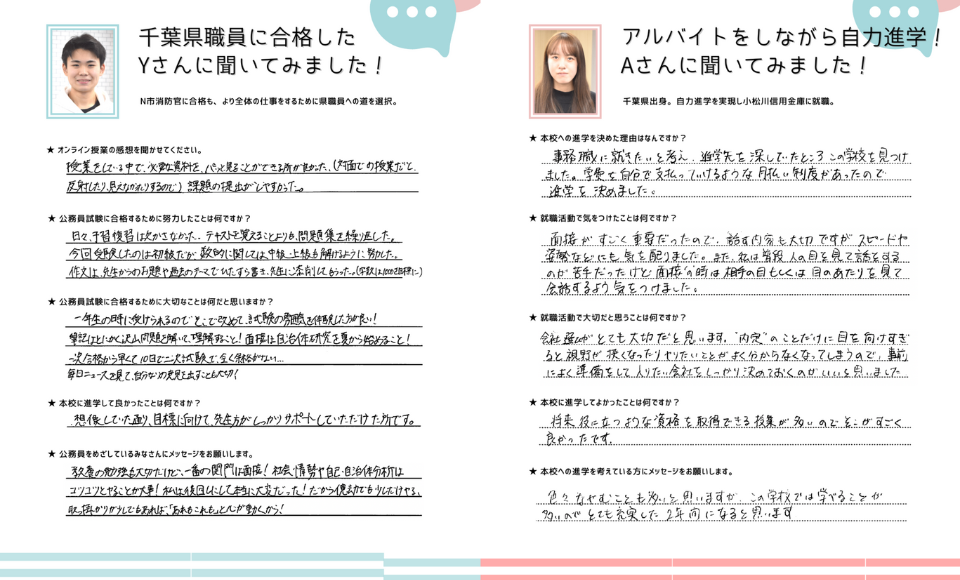 千葉県職員に合格した
Yさんに聞いてみました！
N市消防官に合格も、より全体の仕事をするために県職員への道を選択。
★ オンライン授業の感想を聞かせてください。
授業をしている中で、必要な資料を、パッと見ることができる所が良かった。(対面での授業だと、
反射したり、見えなかったりするので) 課題の提出がしやすかった。
★ 公務員試験に合格するために努力したことは何ですか？
日々、予習復習は欠かさなかった。テキストを覚えることよりも、問題集を繰り返した。
今回受験したのは初級だが、数的に関しては中級、上級も解けるように努力した。
作文は、先生からのお題や過去のテーマでひたすら書き、先生に添削してもらった。
★ 公務員試験に合格するために大切なことは何だと思いますか？
一年生の時に受けられるのでそこで改めて、試験の雰囲気を体験した方が良い！
筆記はとにかく沢山問題を解いて、理解すること！面接は自治体研究を夏から始めること！
一次合格から早くて10日で二次試験で、全く余裕がない…
毎日ニュースを見て、自分なりの意見を出すことも大切！
★ 本校に進学して良かったことは何ですか？
想像していた通り、目標に向けて、先生方がしっかりサポートしていただけた所です。
★ 公務員をめざしているみなさんにメッセージをお願いします。
教養の勉強も大切だけど、一番の関門は面接！社会情勢や自己・自治体分析は
コツコツとやることが大事！私は後回しにして本当に大変だった！だから、僅かでも少しだけやる、
取っ掛かりが少しでもあれば、「あれもこれも」と心が動くから！
アルバイトをしながら自力進学！
Aさんに聞いてみました！
千葉県出身。自力進学を実現し小松川信用金庫に就職。
★ 本校への進学を決めた理由はなんですか？
事務職に就きたいと考え、進学先を探していたところこの学校を見つけ
ました。学費を自分で支払っていけるような月払い制度があったので
進学を決めました。
★ 就職活動で気をつけたことは何ですか？
面接がすごく重要だったので、話す内容も大切ですがスピードや
姿勢などにも気を配りました。また、私は普段人の目を見て話をする
のが苦手だったけど面接の時は相手の目もしくは目のあたりを見て
会話するよう気をつけました。
★ 就職活動で大切だと思うことは何ですか？
会社選びがとても大切だと思います。"内定"のことだけに目を向けすぎ
ると視野が狭くなったりやりたいことがよく分からなくなってしまうので、事前
によく準備をして入りたい会社をしっかり決めておくのがいいと思いました
★ 本校に進学してよかったことは何ですか？
将来役に立つような資格を取得できる授業が多いのでそこがすごく
良かったです。
★ 本校への進学を考えている方にメッセージをお願いします。
色々なやむことも多いと思いますが、この学校では学べることが
多いのでとても充実した2年間になると思います